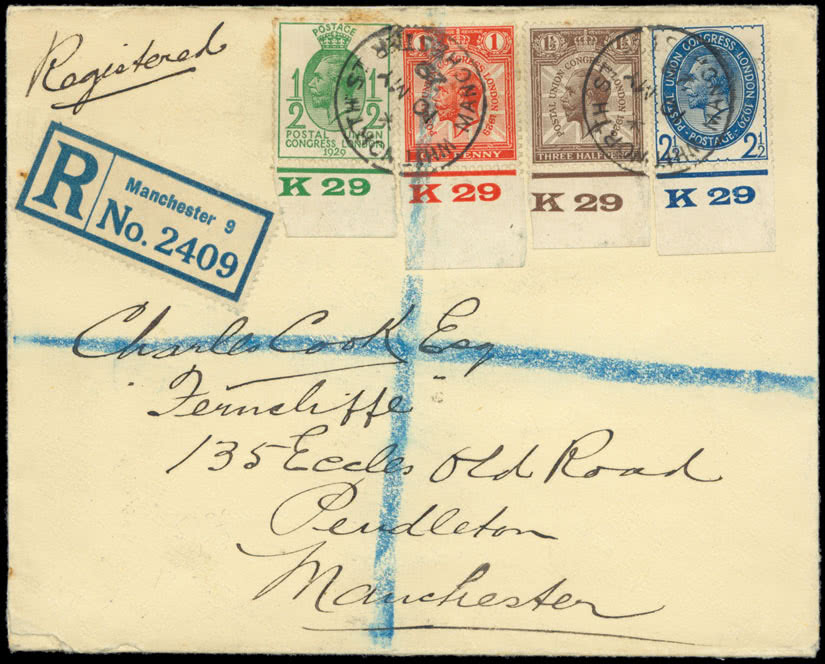 Registered
R Manchester 9
No. 2409
POSTAGE
1/2 1/2
POSTAL UNION
CONGRESS LONDON
1929
K 29
1
CONGRESS LONDON 1929
PENNY
K 29
1½ 1½
POSTAL UNION CONGRESS LONDON 1929
THREE HALFPENCE
K 29
POSTAL UNION CONGRESS LONDON 1929
POSTAGE
2½ 2½
K 29
MANCHESTER
10 MY
29
Charles Cook Esq
"Ferncliffe"
135 Eccles Old Road
Pendleton
Manchester